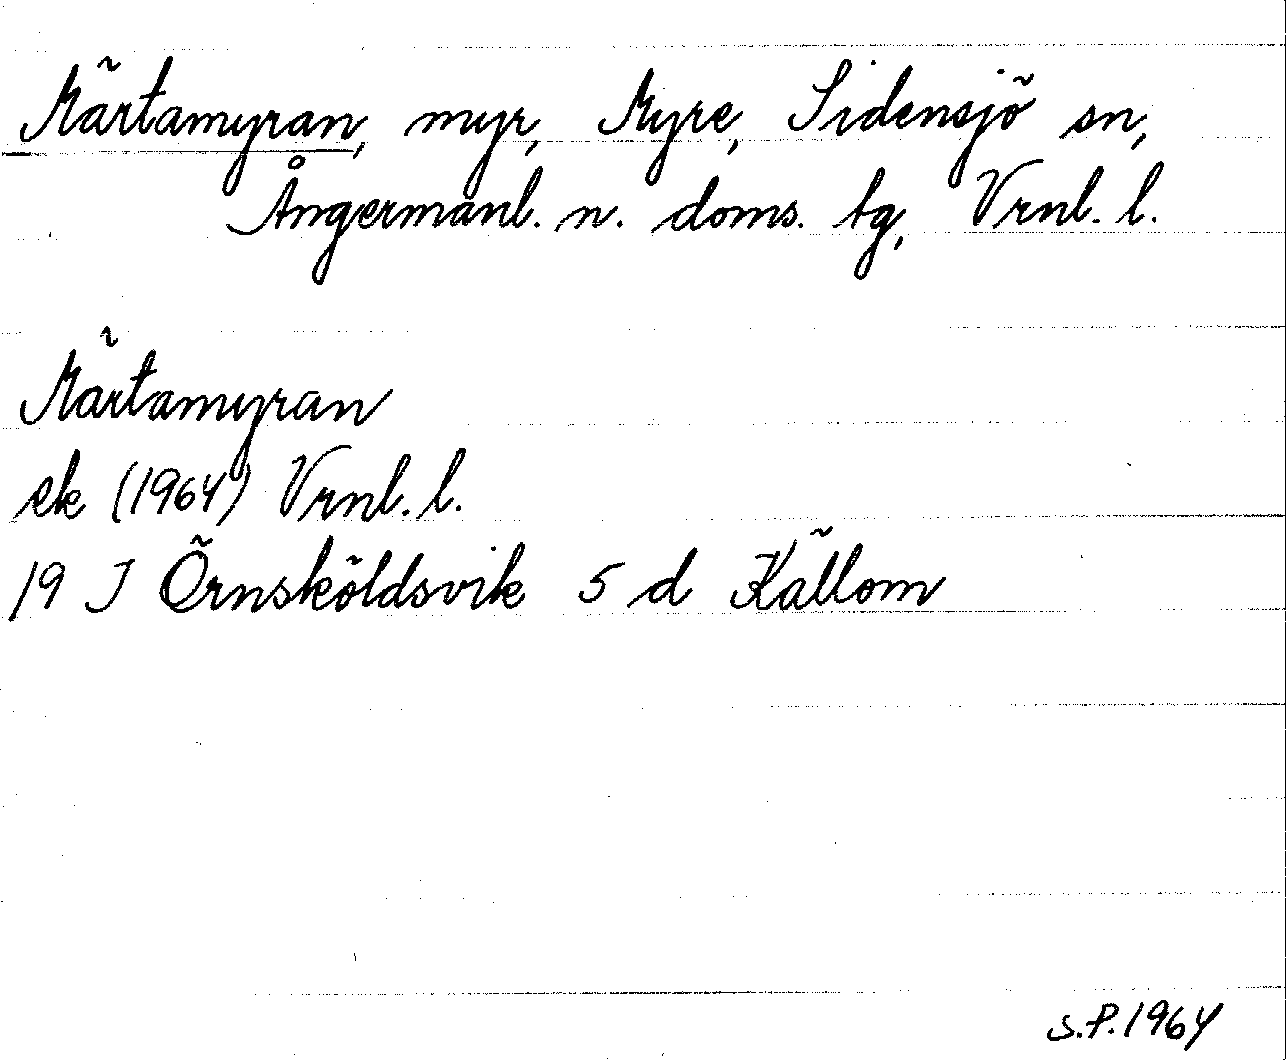 Märtamyran, myr, Myre, Sidensjö sn,
Ångermanl. n. doms. tg, Vrnl. l.
Märtamyran
ek (1964) Vrnl. l.
19 J Örnsköldsvik 5 d Källom
S.P. 1964